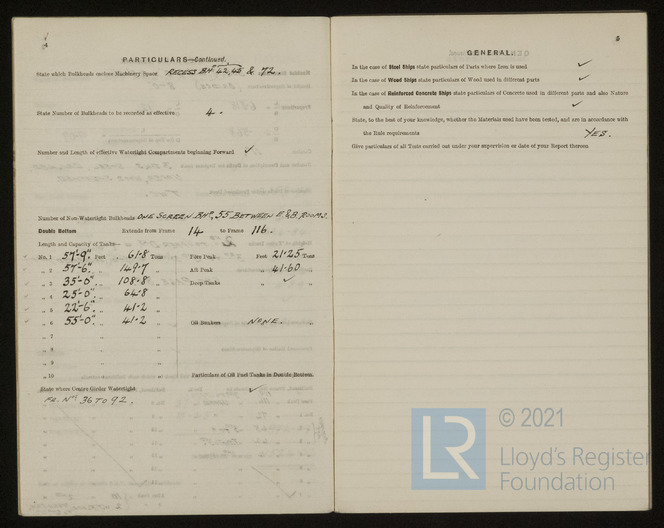 PARTICULARS—Continued.
State which Bulkheads enclose Machinery Space RECESS BHd 42, 45 & 72.
State Number of Bulkheads to be recorded as effective 4.
Number and Length of effective Watertight Compartments beginning Forward ✓
Number of Non-Watertight Bulkheads ONE SCREEN BHd, 55 BETWEEN E & B ROOMS.
Double Bottom Extends from Frame 14 to Frame 116.
Length and Capacity of Tanks—
No. 1 57'-9" Feet 61·8 Tons Fore Peak Feet 21·25 Tons
„ 2 57'-6" „ 149·7 „ Aft Peak „ 41·60 „
„ 3 35'-0" „ 108·8 „ Deep Tanks „ ✓ „
„ 4 25'-0" „ 64·8 „
„ 5 22'-6" „ 41·2 „
„ 6 55'-0" „ 41·2 „ Oil Bunkers NONE. „
„ 7 „ „
„ 8 „ „
„ 9 „ „
„ 10 „ „ Particulars of Oil Fuel Tanks in Double Bottom.
State where Centre Girder Watertight ✓
Fr. Nos 36 TO 92.
5
GENERAL.
In the case of Steel Ships state particulars of Parts where Iron is used ✓
In the case of Wood Ships state particulars of Wood used in different parts ✓
In the case of Reinforced Concrete Ships state particulars of Concrete used in different parts and also Nature
and Quality of Reinforcement ✓
State, to the best of your knowledge, whether the Materials used have been tested, and are in accordance with
the Rule requirements YES.
Give particulars of all Tests carried out under your supervision or date of your Report thereon
LR
© 2021
Lloyd's Register
Foundation